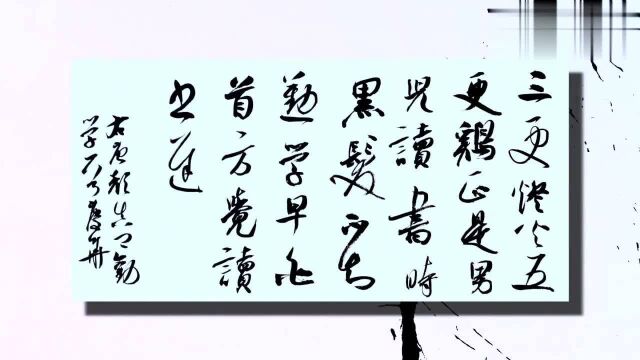 三更燈火五
更鷄正是男
兒讀書時
黑髮不知
勤学早白
首方覺讀
书遲
右唐顏真卿勸
学